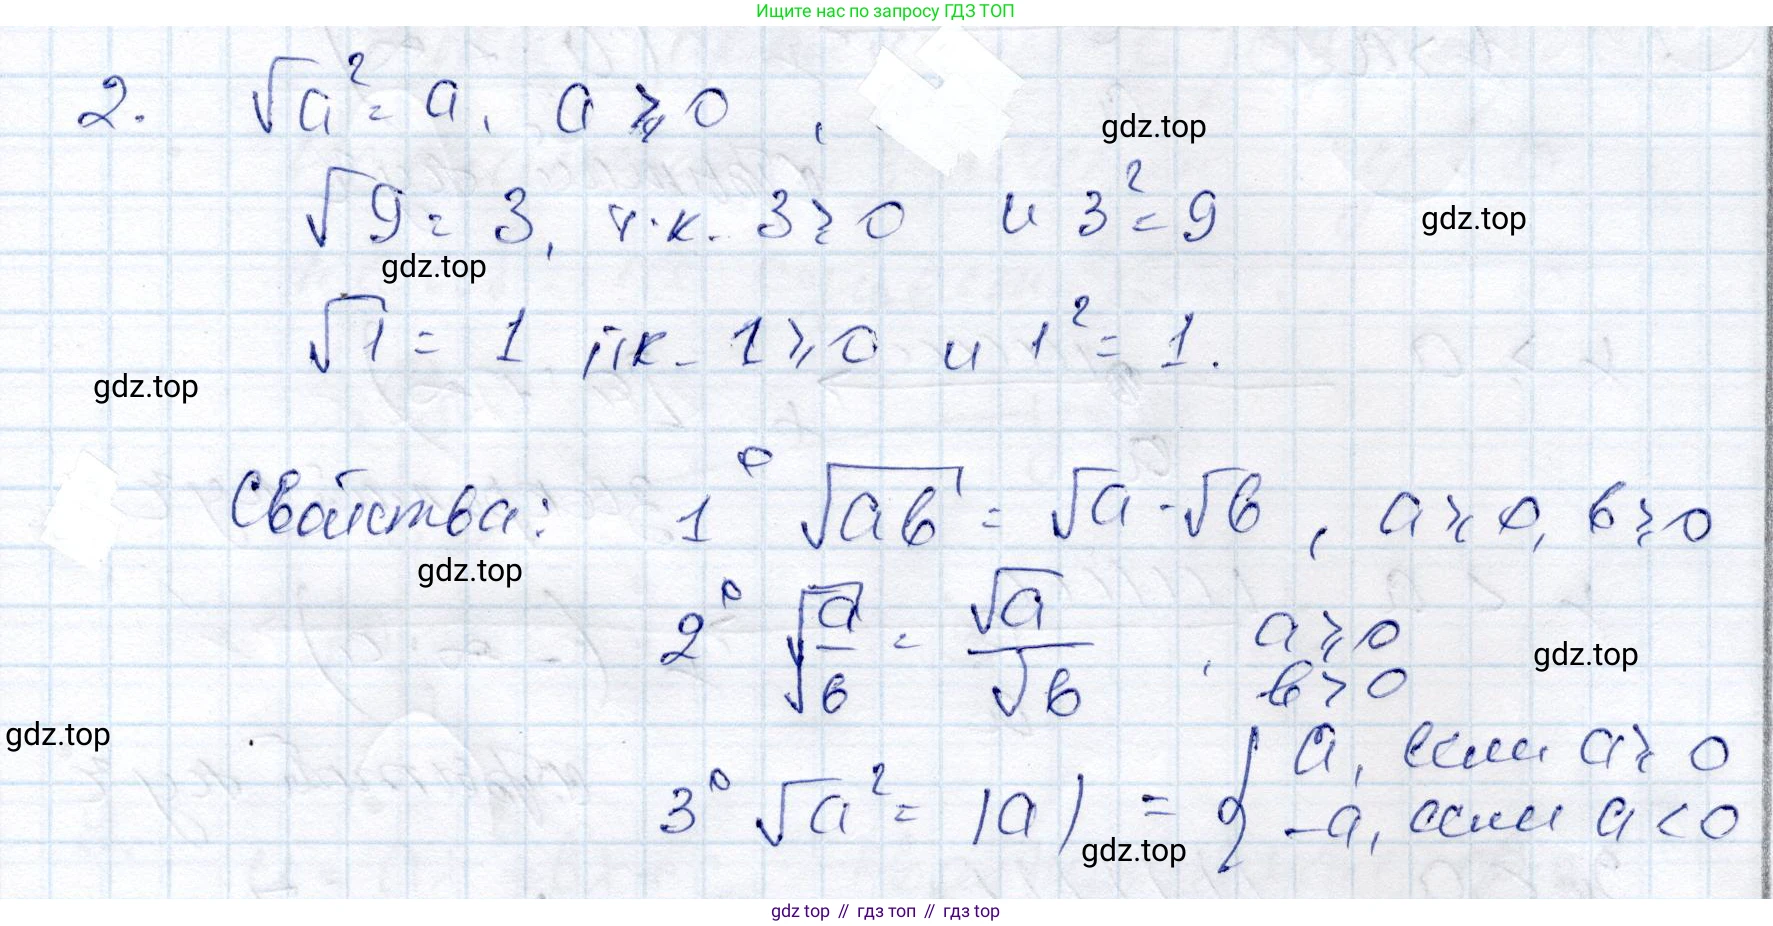 Ищите нас по запросу ГДЗ ТОП
2. √a² = a, a ⩾ 0,
gdz.top
√9 = 3, т.к. 3 ⩾ 0 и 3² = 9
gdz.top
gdz.top
√1 = 1 тк. 1 ⩾ 0 и 1² = 1.
gdz.top
Свойства: 1° √ab = √a · √b, a ⩾ 0, b ⩾ 0
gdz.top
2° √(a/b) = √a/√b, a ⩾ 0
b > 0
gdz.top
gdz.top
3° √a² = |a| = { a, если a ⩾ 0
-a, если a < 0
gdz.top
gdz top // гдз топ // гдз top